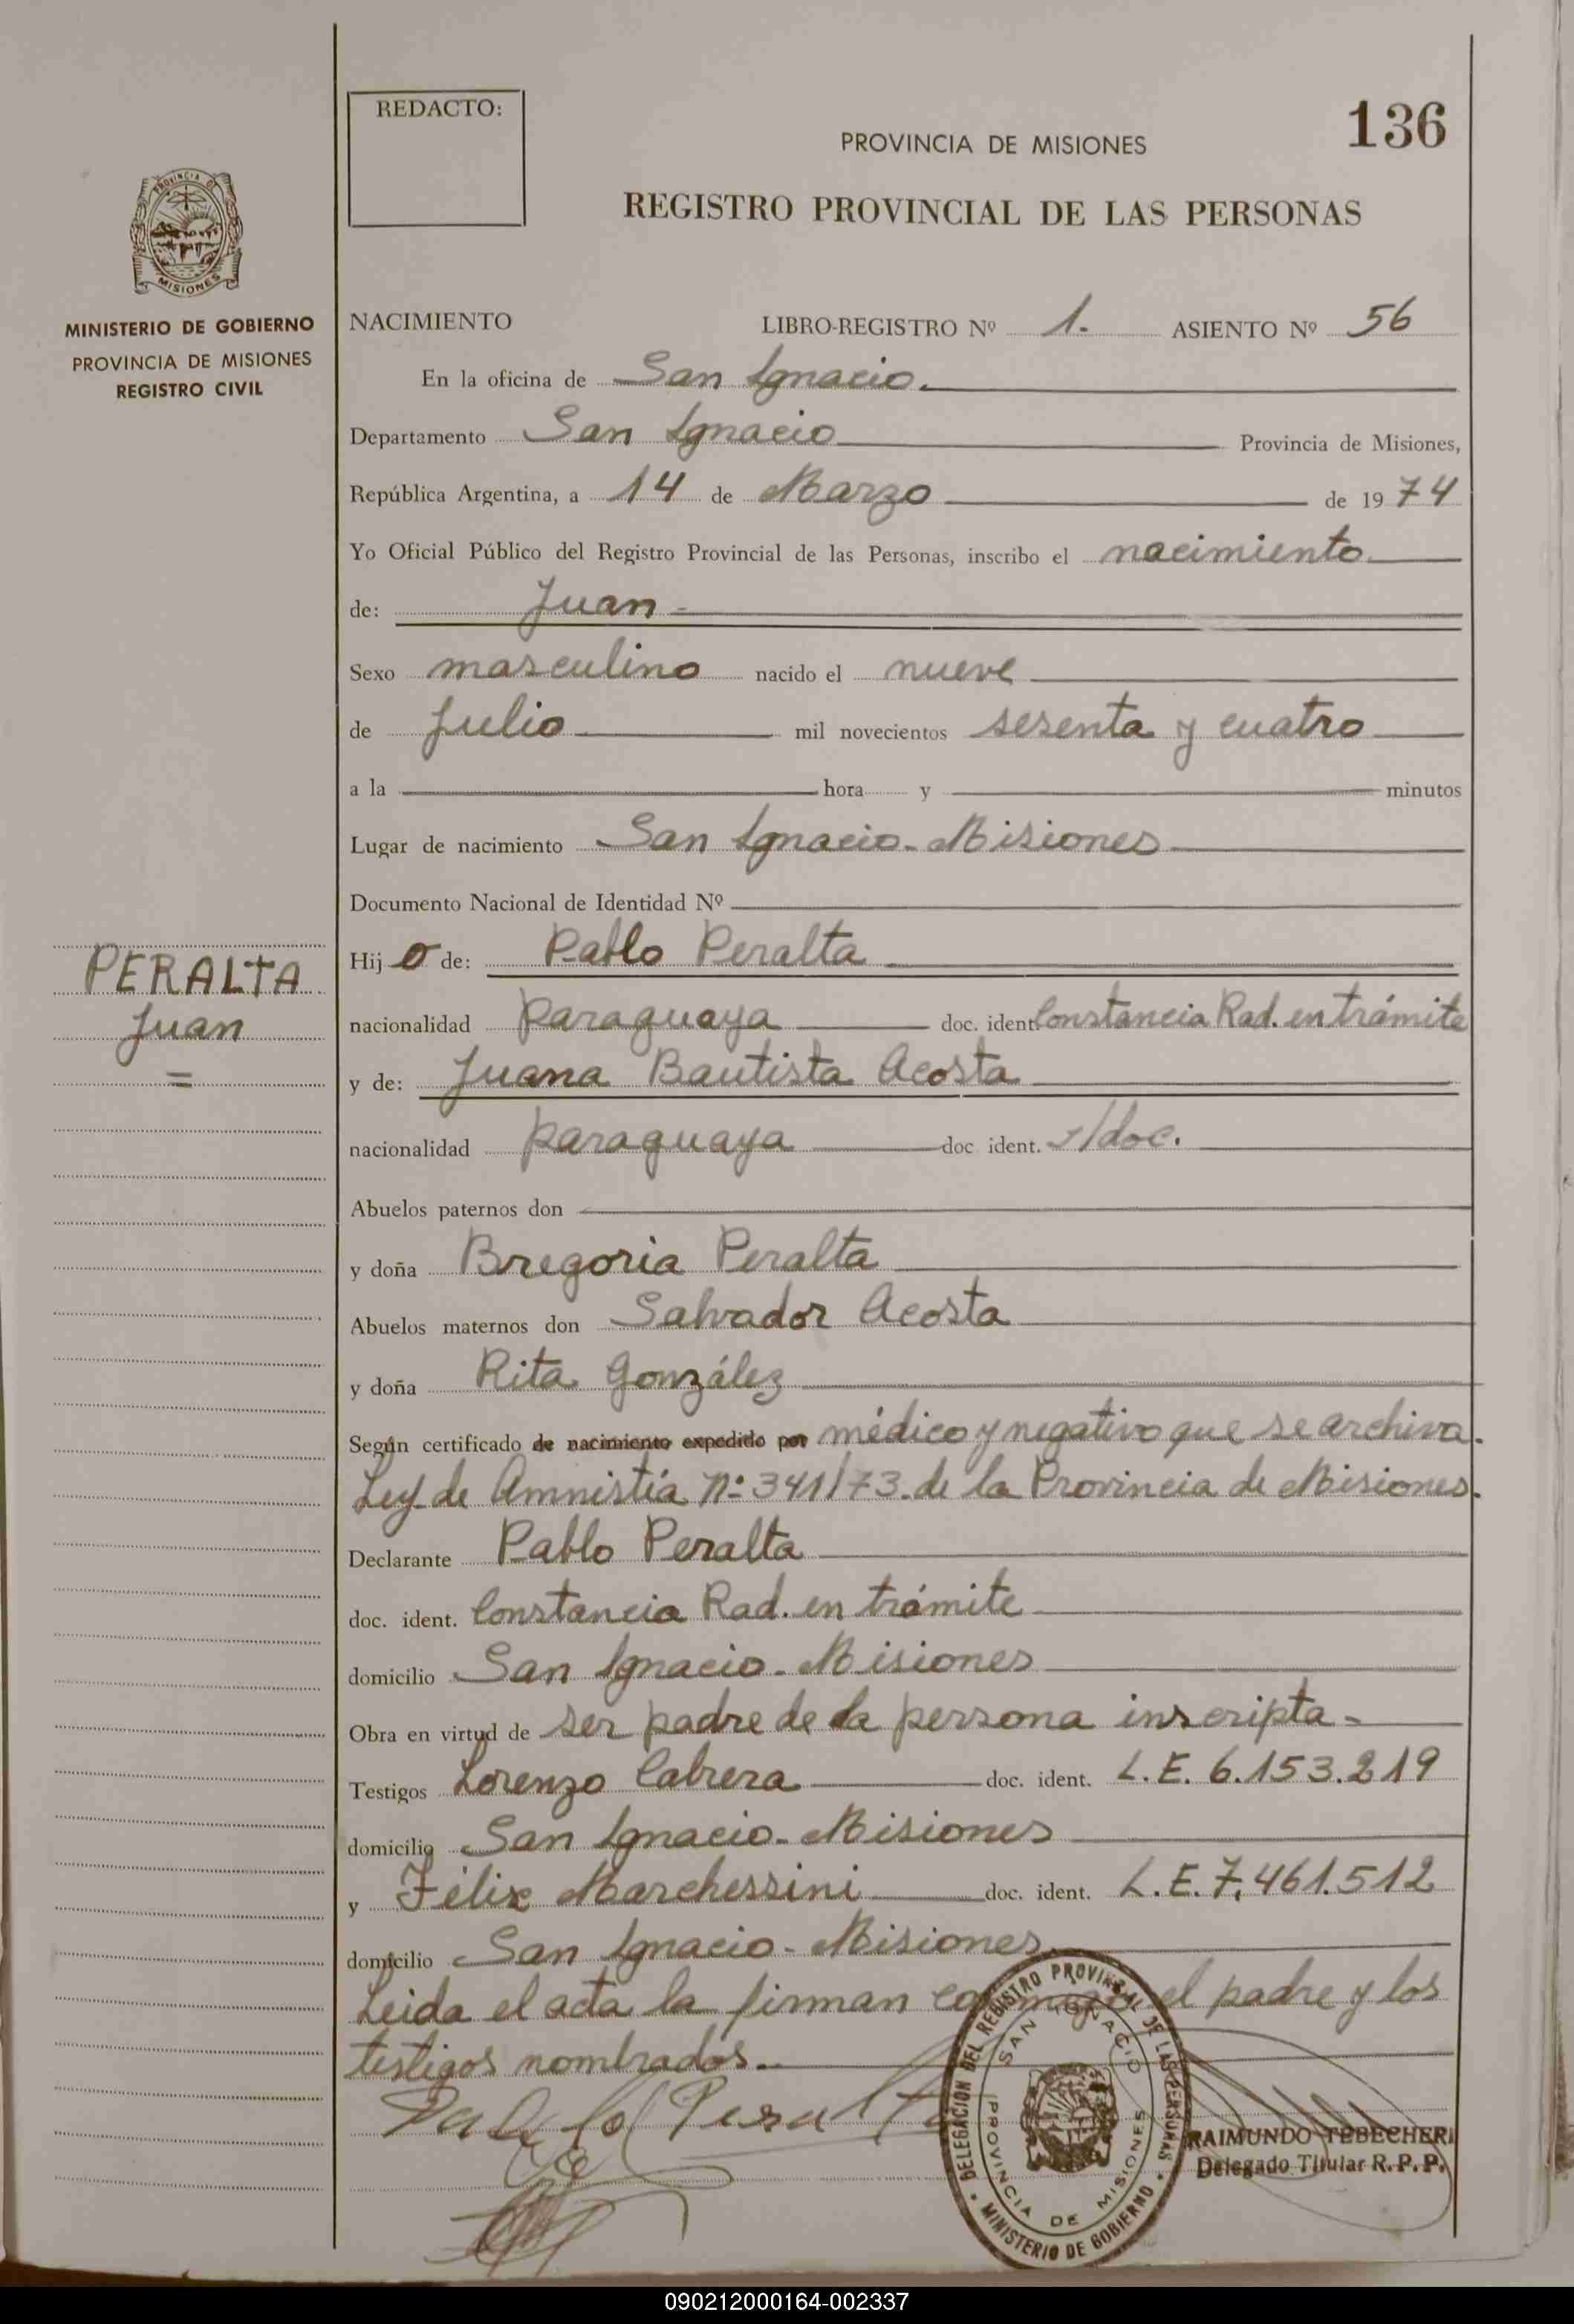 REDACTO:
136
PROVINCIA DE MISIONES
REGISTRO PROVINCIAL DE LAS PERSONAS
PROVINCIA DE
MISIONES
MINISTERIO DE GOBIERNO
PROVINCIA DE MISIONES
REGISTRO CIVIL
NACIMIENTO LIBRO-REGISTRO Nº 1. ASIENTO Nº 56
En la oficina de San Ignacio.
Departamento San Ignacio Provincia de Misiones,
República Argentina, a 14 de Marzo de 1974
Yo Oficial Público del Registro Provincial de las Personas, inscribo el nacimiento
de: Juan
Sexo masculino nacido el nueve
de Julio mil novecientos sesenta y cuatro
a la hora y minutos
Lugar de nacimiento San Ignacio - Misiones
Documento Nacional de Identidad Nº
PERALTA
Juan
Hijo de: Pablo Peralta
nacionalidad paraguaya doc. ident. Constancia Rad. en trámite
y de: Juana Bautista Acosta
nacionalidad paraguaya doc ident. s/doc.
Abuelos paternos don
y doña Bregoria Peralta
Abuelos maternos don Salvador Acosta
y doña Rita González
Según certificado de nacimiento expedido por médico y negativo que se archiva.
Ley de Amnistía Nº 341/73. de la Provincia de Misiones.
Declarante Pablo Peralta
doc. ident. Constancia Rad. en trámite
domicilio San Ignacio - Misiones
Obra en virtud de ser padre de la persona inscripta -
Testigos Lorenzo Cabrera doc. ident. L.E. 6.153.219
domicilio San Ignacio - Misiones
y Félix Marchessini doc. ident. L.E. 7.461.512
domicilio San Ignacio - Misiones
Leida el acta la firman conmigo el padre y los
testigos nombrados.
Pablo Peralta
DELEGACION DEL REGISTRO PROVINCIAL DE LAS PERSONAS
SAN IGNACIO
PROVINCIA DE MISIONES
MINISTERIO DE GOBIERNO
RAIMUNDO TEBECHERI
Delegado Titular R. P. P.
090212000164-002337